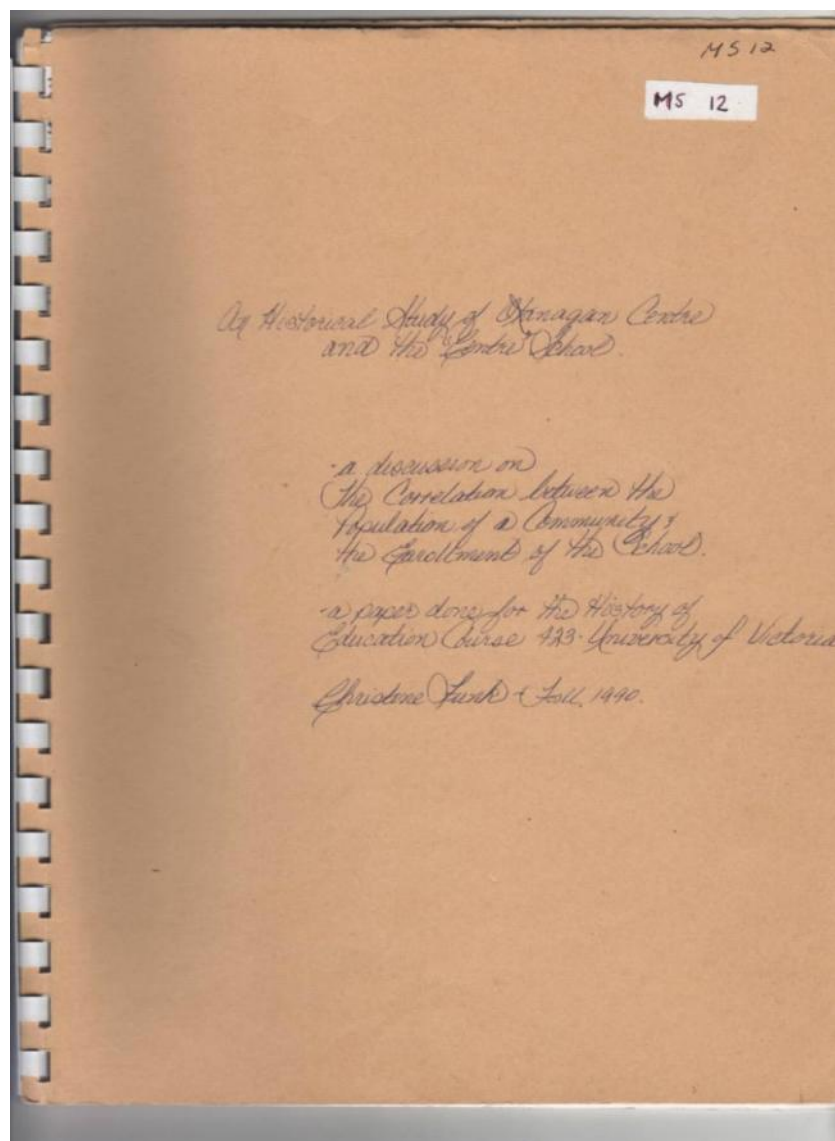 MS 12
MS 12
An Historical Study of Okanagan Centre
and the "Centre" School.
- a discussion on
The Correlation between the
Population of a Community &
the Enrollment of the School.
- a paper done for the History of
Education Course 423 - University of Victoria
Christine Funk - Fall, 1990.